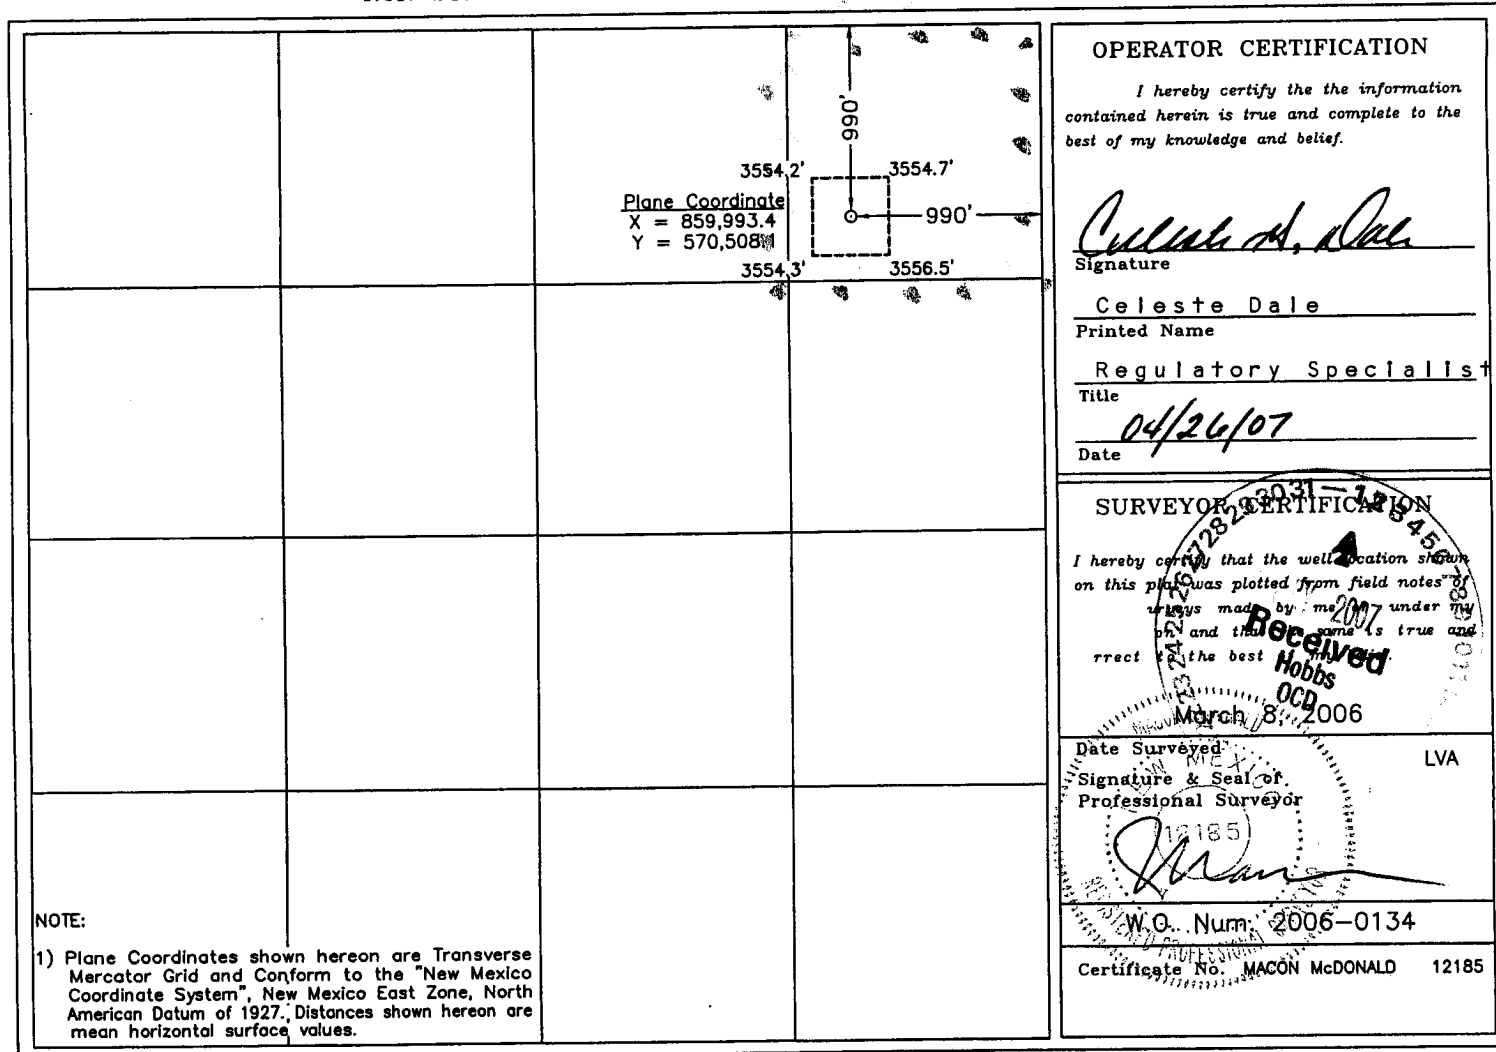 990'
3554.2'
3554.7'
Plane Coordinate
X = 859,993.4
Y = 570,508
990'
3554.3'
3556.5'
NOTE:
1) Plane Coordinates shown hereon are Transverse
Mercator Grid and Conform to the "New Mexico
Coordinate System", New Mexico East Zone, North
American Datum of 1927. Distances shown hereon are
mean horizontal surface values.
OPERATOR CERTIFICATION
I hereby certify the the information
contained herein is true and complete to the
best of my knowledge and belief.
Signature
Celeste Dale
Printed Name
Regulatory Specialist
Title
04/26/07
Date
SURVEYOR CERTIFICATION
I hereby certify that the well location shown
on this plat was plotted from field notes of
made by me under my
and same is true and
rrect the best
2007
Received
Hobbs
OCD
March 8, 2006
Date Surveyed
LVA
Signature & Seal of
Professional Surveyor
NEW MEXICO
12185
REGISTERED PROFESSIONAL SURVEYOR
W.O. Num: 2006-0134
Certificate No. MACON McDONALD 12185